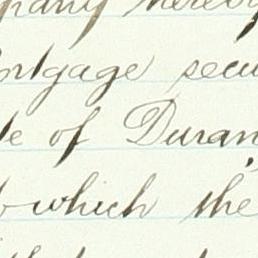 pany hereby
ortgage secu
le of Duran
which the